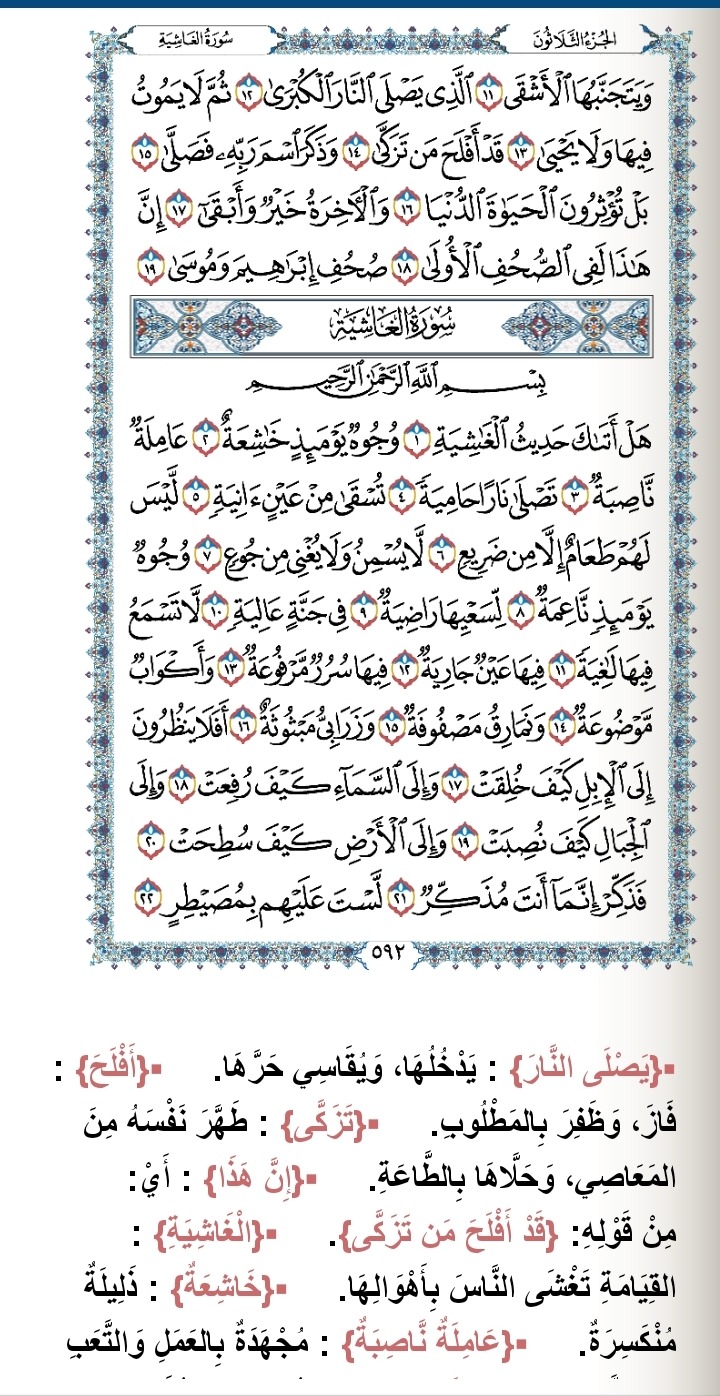 الجزء الثلاثون
سورة الغاشية
وَيَتَجَنَّبُهَا ٱلْأَشْقَى ١١ ٱلَّذِى يَصْلَى ٱلنَّارَ ٱلْكُبْرَىٰ ١٢ ثُمَّ لَا يَمُوتُ
فِيهَا وَلَا يَحْيَىٰ ١٣ قَدْ أَفْلَحَ مَن تَزَكَّىٰ ١٤ وَذَكَرَ ٱسْمَ رَبِّهِۦ فَصَلَّىٰ ١٥
بَلْ تُؤْثِرُونَ ٱلْحَيَوٰةَ ٱلدُّنْيَا ١٦ وَٱلْأَخِرَةُ خَيْرٌ وَأَبْقَىٰٓ ١٧ إِنَّ
هَٰذَا لَفِى ٱلصُّحُفِ ٱلْأُولَىٰ ١٨ صُحُفِ إِبْرَٰهِيمَ وَمُوسَىٰ ١٩
سُورَةُ الغَاشِيَةِ
بِسْمِ ٱللَّهِ ٱلرَّحْمَٰنِ ٱلرَّحِيمِ
هَلْ أَتَىٰكَ حَدِيثُ ٱلْغَٰشِيَةِ ١ وُجُوهٌ يَوْمَئِذٍ خَٰشِعَةٌ ٢ عَامِلَةٌ
نَّاصِبَةٌ ٣ تَصْلَىٰ نَارًا حَامِيَةً ٤ تُسْقَىٰ مِنْ عَيْنٍ ءَانِيَةٍ ٥ لَّيْسَ
لَهُمْ طَعَامٌ إِلَّا مِن ضَرِيعٍ ٦ لَّا يُسْمِنُ وَلَا يُغْنِى مِن جُوعٍ ٧ وُجُوهٌ
يَوْمَئِذٍ نَّاعِمَةٌ ٨ لِّسَعْيِهَا رَاضِيَةٌ ٩ فِى جَنَّةٍ عَالِيَةٍ ١٠ لَّا تَسْمَعُ
فِيهَا لَٰغِيَةً ١١ فِيهَا عَيْنٌ جَارِيَةٌ ١٢ فِيهَا سُرُرٌ مَّرْفُوعَةٌ ١٣ وَأَكْوَابٌ
مَّوْضُوعَةٌ ١٤ وَنَمَارِقُ مَصْفُوفَةٌ ١٥ وَزَرَابِىُّ مَبْثُوثَةٌ ١٦ أَفَلَا يَنظُرُونَ
إِلَى ٱلْإِبِلِ كَيْفَ خُلِقَتْ ١٧ وَإِلَى ٱلسَّمَآءِ كَيْفَ رُفِعَتْ ١٨ وَإِلَى
ٱلْجِبَالِ كَيْفَ نُصِبَتْ ١٩ وَإِلَى ٱلْأَرْضِ كَيْفَ سُطِحَتْ ٢٠
فَذَكِّرْ إِنَّمَآ أَنتَ مُذَكِّرٌ ٢١ لَّسْتَ عَلَيْهِم بِمُصَيْطِرٍ ٢٢
٥٩٢
▪{يَصْلَى النَّارَ} : يَدْخُلُهَا، وَيُقَاسِي حَرَّهَا. ▪{أَفْلَحَ} :
فَازَ، وَظَفِرَ بِالمَطْلُوبِ. ▪{تَزَكَّى} : طَهَّرَ نَفْسَهُ مِنَ
المَعَاصِي، وَحَلَّاهَا بِالطَّاعَةِ. ▪{إِنَّ هَذَا} : أَيْ:
مِنْ قَوْلِهِ: {قَدْ أَفْلَحَ مَن تَزَكَّى}. ▪{الْغَاشِيَةِ} :
القِيَامَةِ تَغْشَى النَّاسَ بِأَهْوَالِهَا. ▪{خَاشِعَةٌ} : ذَلِيلَةٌ
مُنْكَسِرَةٌ. ▪{عَامِلَةٌ نَّاصِبَةٌ} : مُجْهَدَةٌ بِالعَمَلِ وَالتَّعَبِ